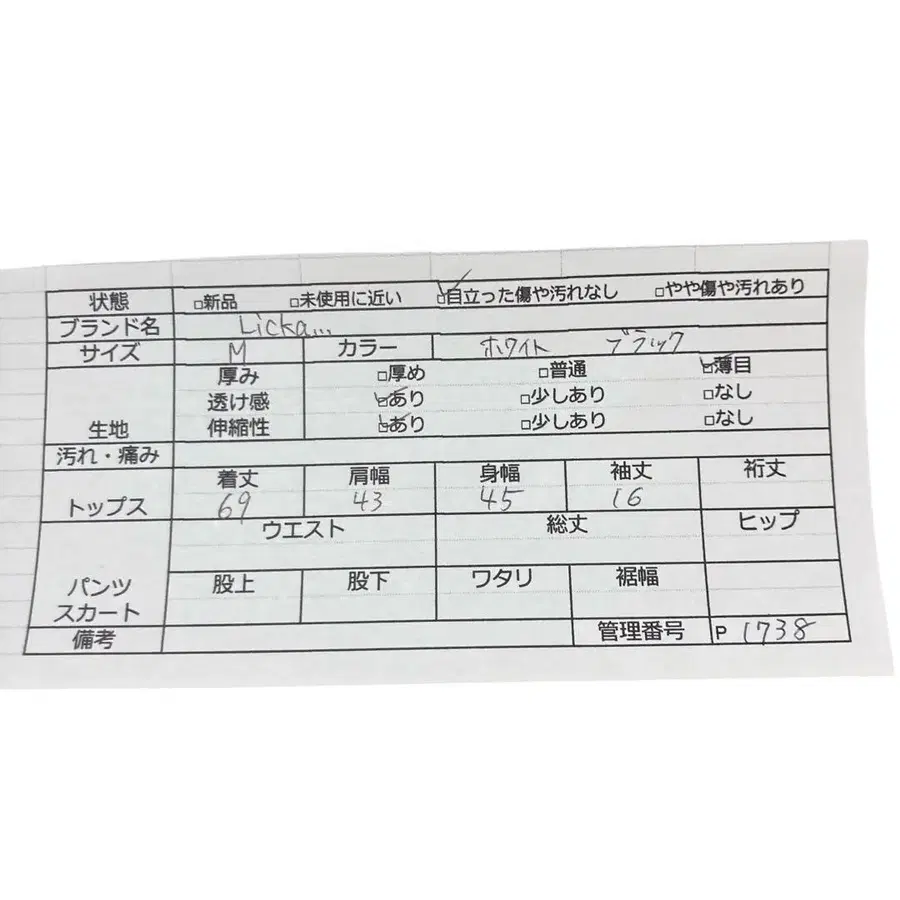 状態 □新品 □未使用に近い ☑目立った傷や汚れなし □やや傷や汚れあり
ブランド名 Licka...
サイズ M カラー ホワイト ブラック
生地 厚み □厚め □普通 ☑薄目
透け感 ☑あり □少しあり □なし
伸縮性 ☑あり □少しあり □なし
汚れ・痛み
トップス 着丈 肩幅 身幅 袖丈 裄丈
69 43 45 16
パンツ スカート ウエスト 総丈 ヒップ
股上 股下 ワタリ 裾幅
備考 管理番号 P 1738